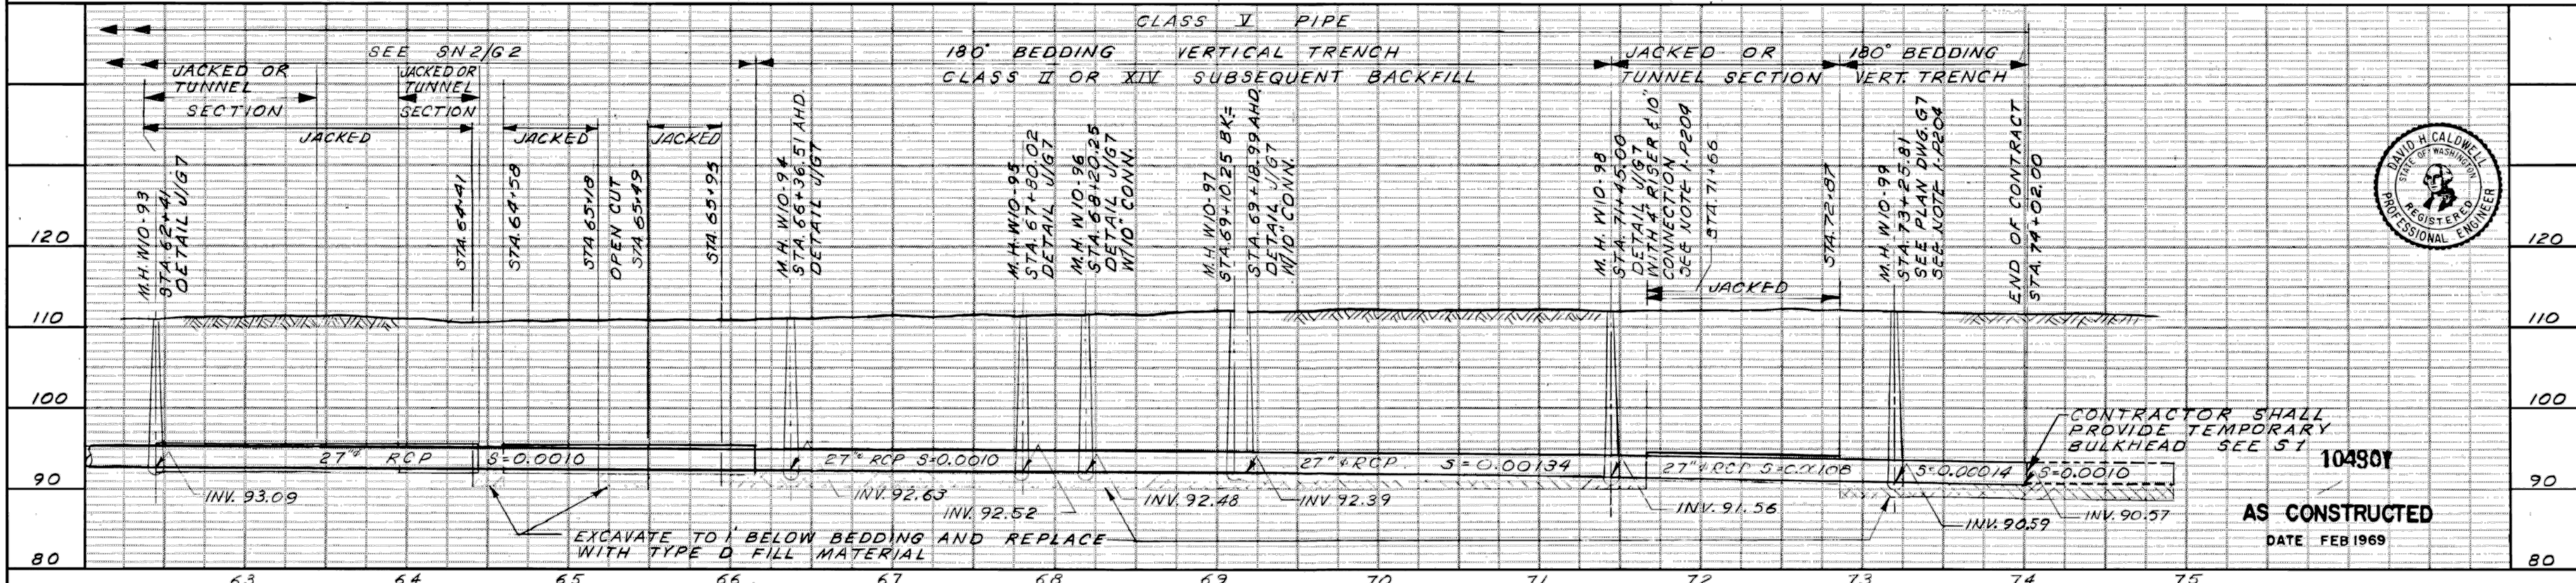 CLASS V PIPE
SEE SN2/G2
180° BEDDING VERTICAL TRENCH
JACKED OR
180° BEDDING
JACKED OR
TUNNEL
SECTION
JACKED OR
TUNNEL
SECTION
CLASS II OR XIV SUBSEQUENT BACKFILL
TUNNEL SECTION
VERT. TRENCH
JACKED
JACKED
JACKED
M.H. W10-93
STA. 62+41
DETAIL J/G7
STA. 64+41
STA. 64+58
STA 65+18
OPEN CUT
STA 65+49
STA. 65+95
M.H. W10-94
STA. 66+36.51 AHD.
DETAIL J/G7
M.H. W10-95
STA. 67+80.02
DETAIL J/G7
M.H. W10-96
STA. 68+20.25
DETAIL J/G7
W/10" CONN.
M.H. W10-97
STA. 69+10.25 BK=
STA. 69+18.99 AHD.
DETAIL J/G7
W/10" CONN.
M.H. W10-98
STA. 71+45.00
DETAIL J/G7
WITH 4" RISER & 10"
CONNECTION
SEE NOTE 1-P204
STA. 71+66
JACKED
STA. 72+87
M.H. W10-99
STA. 73+25.81
SEE PLAN DWG. G7
SEE NOTE 1-P204
END OF CONTRACT
STA. 74+02.00
DAVID H. CALDWELL
STATE OF WASHINGTON
REGISTERED
PROFESSIONAL ENGINEER
120
120
110
110
100
100
90
90
80
80
27"ø RCP S=0.0010
27"ø RCP S=0.0010
27"ø RCP. S=0.00134
27"ø RCP S=0.00108
S=0.00014
S=0.0010
INV. 93.09
INV. 92.63
INV. 92.52
INV. 92.48
INV 92.39
INV. 91.56
INV. 90.59
INV. 90.57
EXCAVATE TO 1' BELOW BEDDING AND REPLACE
WITH TYPE D FILL MATERIAL
CONTRACTOR SHALL
PROVIDE TEMPORARY
BULKHEAD SEE S1
AS CONSTRUCTED
DATE FEB 1969
63 64 65 66 67 68 69 70 71 72 73 74 75